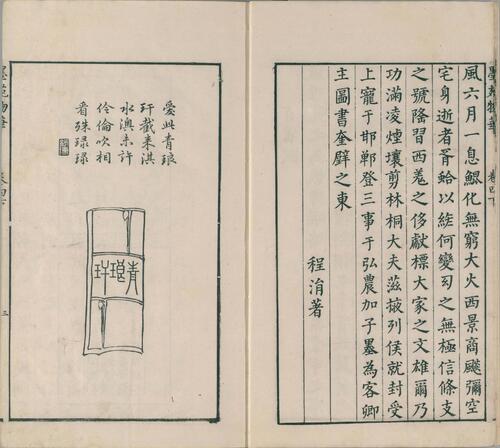 風六月一息鯤化無窮大火西景商飈彌空
宅身逝者齊給以絓何變匄之無極信條支
之號降習西羌之侈獻標大家之文雄爾乃
功滿凌煙壤剪林桐大夫滋掖列侯就封受
上寵于邯鄲登三事于弘農加子墨為客卿
主圖書奎壁之東
程涓著
愛此青琅
玕截來淇
水澳未許
伶倫吹相
看殊琭琭
青琅玕
三